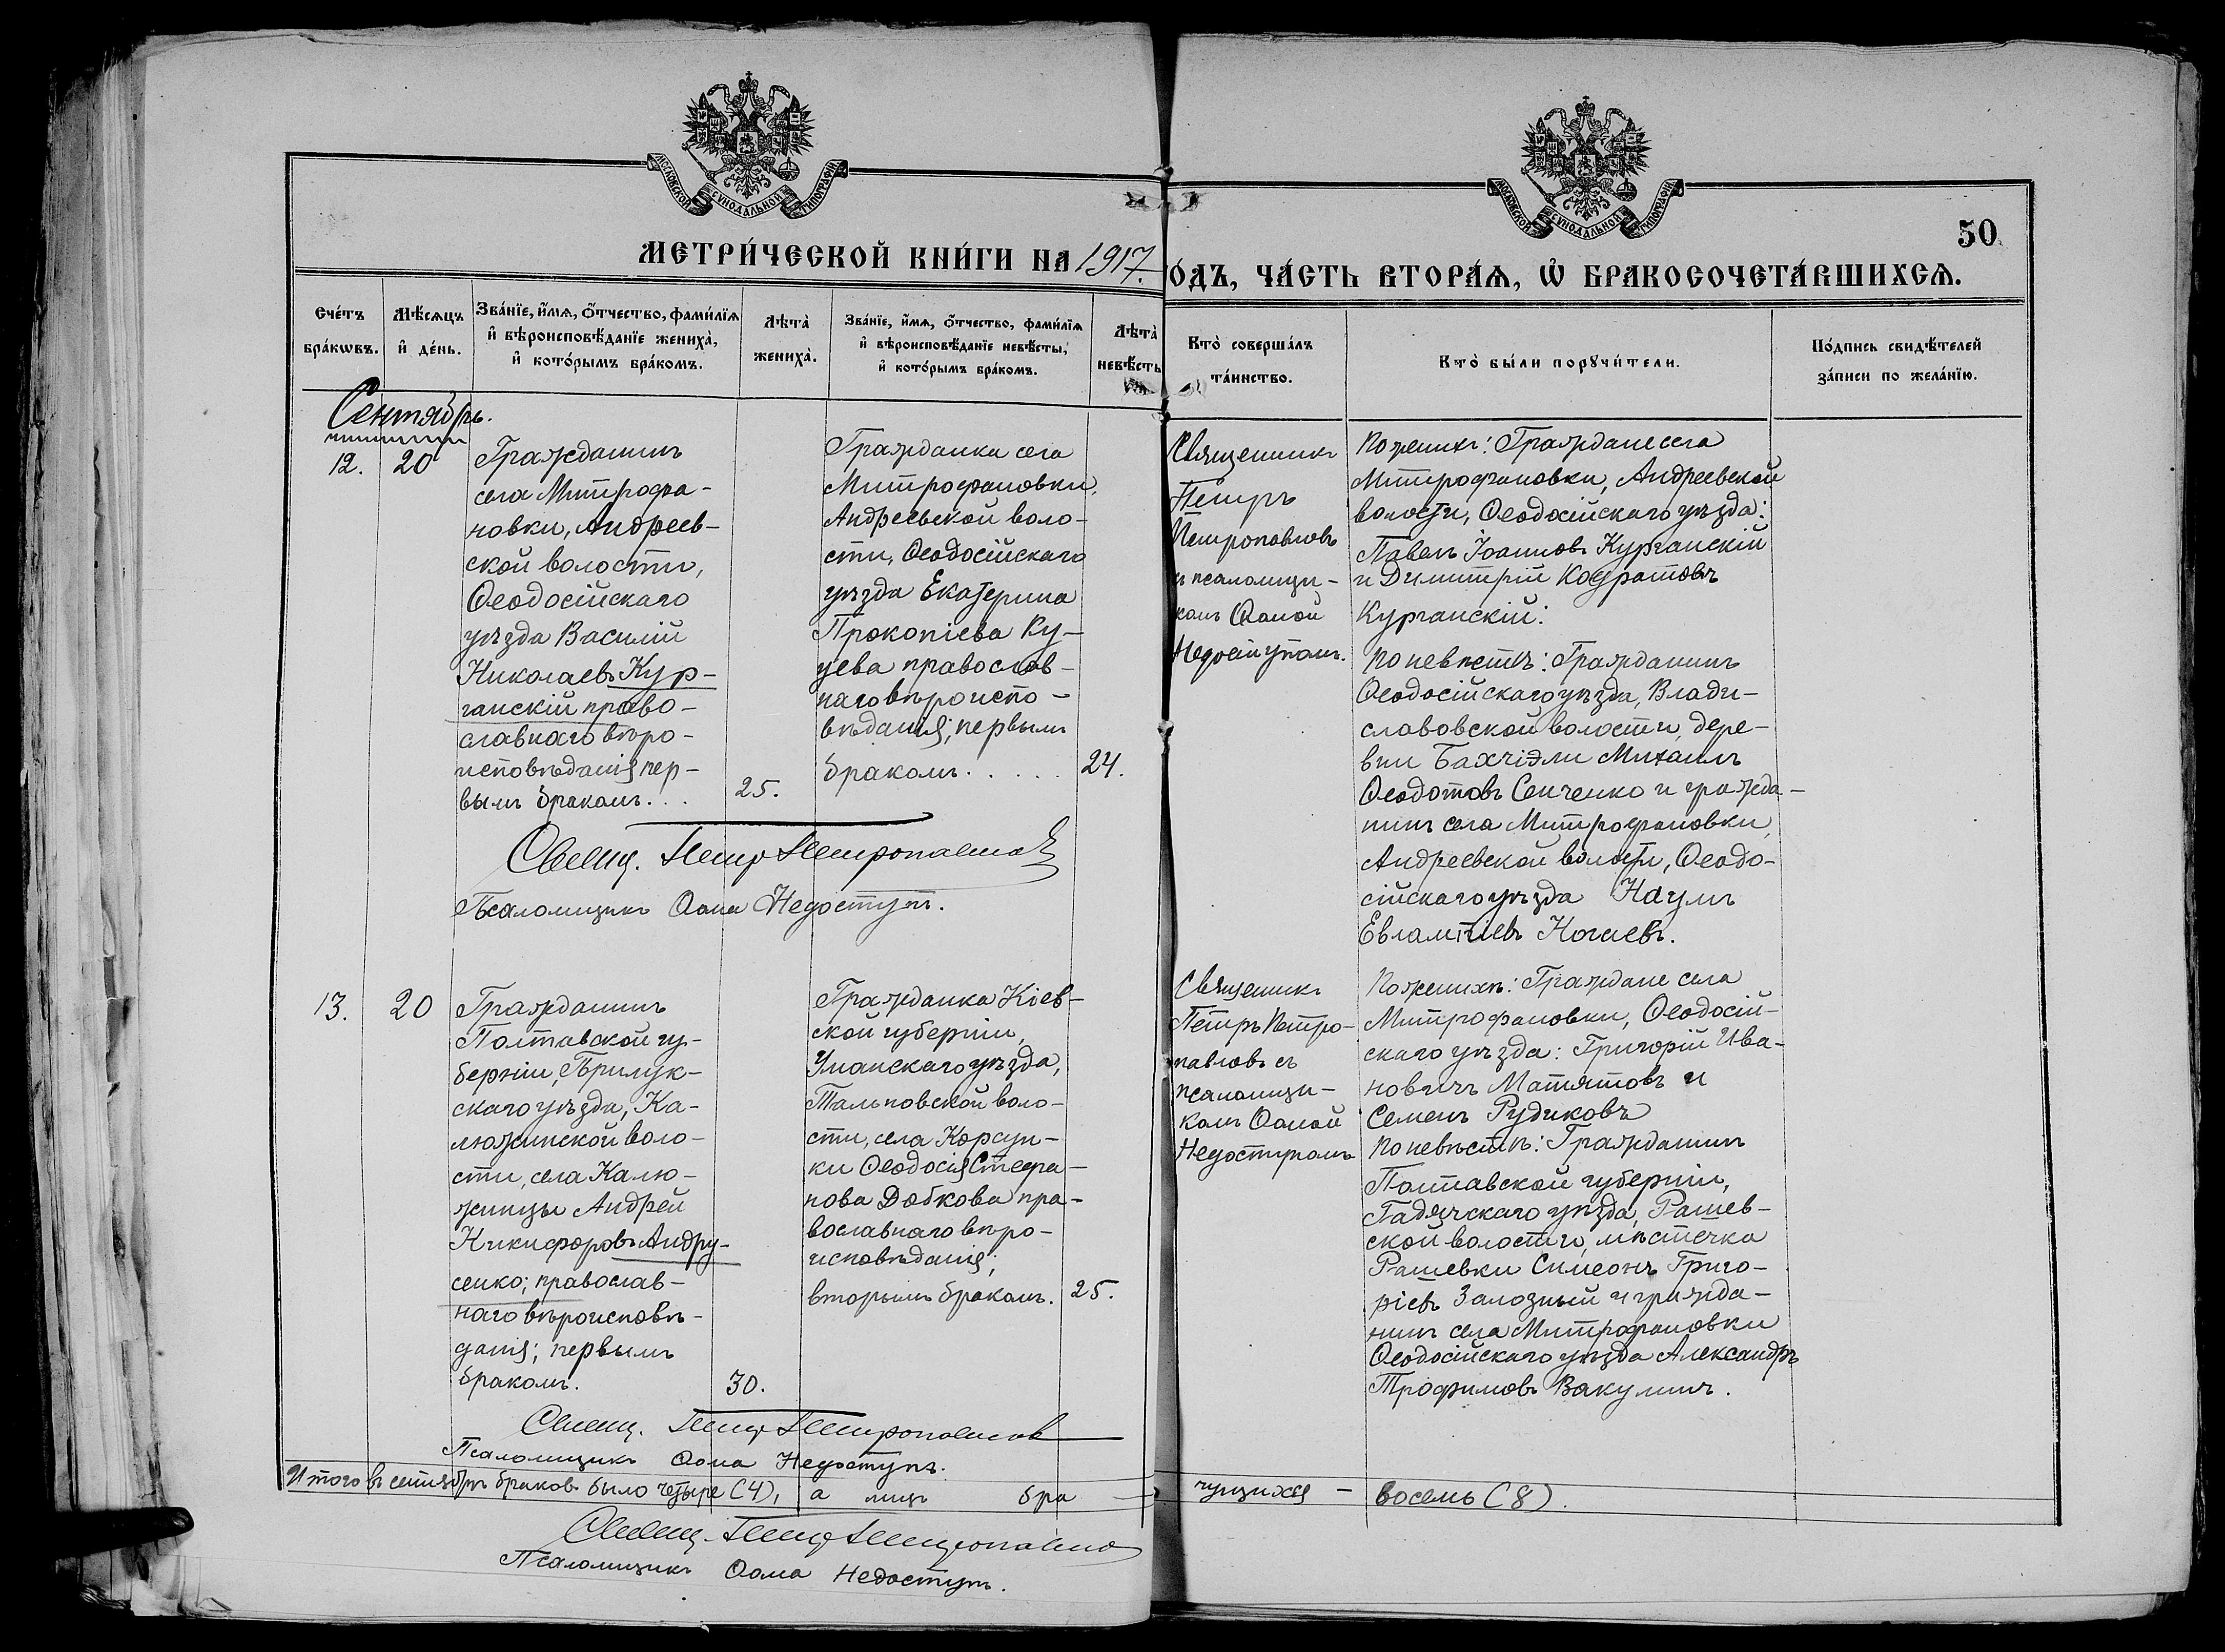 МОСКОВСКОЙ СѴНОДАЛЬНОЙ ТИПОГРАФІИ
МОСКОВСКОЙ СѴНОДАЛЬНОЙ ТИПОГРАФІИ
50
МЕТРИ́ЧЕСКОЙ КНИ́ГИ НА 1917.
О́ДЪ, ЧА́СТЬ ВТОРА́Ѧ, Ѡ҆ БРАКОСОЧЕТА́ВШИХСѦ.
Сче́тъ
бра́кѡвъ.
Мѣ́сѧцъ
и҆ де́нь.
Зва́нїе, и҆́мѧ, ѻ҆́тчество, фами́лїѧ
и҆ вѣроисповѣ́данїе жениха̀,
и҆ кото́рымъ бра́комъ.
Лѣта̀
жениха̀.
Зва́нїе, и҆́мѧ, ѻ҆́тчество, фами́лїѧ
и҆ вѣроисповѣ́данїе невѣ́сты,
и҆ кото́рымъ бра́комъ.
Лѣта̀
невѣ́сты
Кто̀ соверша́лъ
та́инство.
Кто̀ бы́ли порꙋчи́тели.
По́дпись свидѣ́телей
за́писи по жела́нїю.
Сентябрь.
12.
20
Гражданинъ
села Митрофа-
новки, Андреев-
ской волости,
Ѳеодосійскаго
уѣзда Василій
Николаевъ Кур-
ганскій право-
славнаго вѣро-
исповѣданія пер-
вымъ бракомъ...
25.
Гражданка села
Митрофановки,
Андреевской воло-
сти, Ѳеодосійскаго
уѣзда Екатерина
Прокопіева Ку-
цева православ-
наго вѣроиспо-
вѣданія; первымъ
бракомъ.....
24.
Священникъ
Петръ
Петропавловъ
съ псаломщи-
комъ Ѳомой
Недоступомъ.
По женихѣ: Граждане села
Митрофановки, Андреевской
волости, Ѳеодосійскаго уѣзда:
Павелъ Іоанновъ Курганскій
и Димитрій Кодратовъ
Курганскій:
По невѣстѣ: Гражданинъ
Ѳеодосійскаго уѣзда, Влади-
славовской волости, дере-
вни Бахчіэли Михаилъ
Ѳеодотовъ Сенченко и гражда-
нинъ села Митрофановки,
Андреевской волости, Ѳеодо-
сійскаго уѣзда Наумъ
Евлампіевъ Ногаевъ.
Свящ. Петр Петропавлов
Псаломщикъ Ѳома Недоступъ.
13.
20
Гражданинъ
Полтавской гу-
берніи, Прилук-
скаго уѣзда, Ка-
люжинской воло-
сти, села Калю-
жинцы Андрей
Никифоровъ Андру-
сенко; православ-
наго вѣроисповѣ-
данія; первымъ
бракомъ.
30.
Гражданка Кіев-
ской губерніи,
Уманскаго уѣзда,
Тальновской воло-
сти, села Корсун-
ки Ѳеодосія Стефа-
нова Добкова пра-
вославнаго вѣро-
исповѣданія;
вторымъ бракомъ.
25.
Священникъ
Петръ Петро-
павловъ съ
псаломщи-
комъ Ѳомой
Недоступомъ
По женихѣ: Граждане села
Митрофановки, Ѳеодосій-
скаго уѣзда: Григорій Ива-
новичъ Матятовъ и
Семенъ Рудиковъ
По невѣстѣ: Гражданинъ
Полтавской губерніи,
Гадячскаго уѣзда, Рашев-
ской волости, мѣстечка
Рашевки Симеонъ Григо-
ріевъ Залозный и гражда-
нинъ села Митрофановки
Ѳеодосійскаго уѣзда Александръ
Трофимовъ Вакулинъ.
Свящ. Петр Петропавлов
Псаломщикъ Ѳома Недоступъ.
Итого въ сентябрѣ браковъ было четыре (4), а лицъ бра
чущихся - восемь (8).
Свящ. Петр Петропавлов
Псаломщикъ Ѳома Недоступъ.